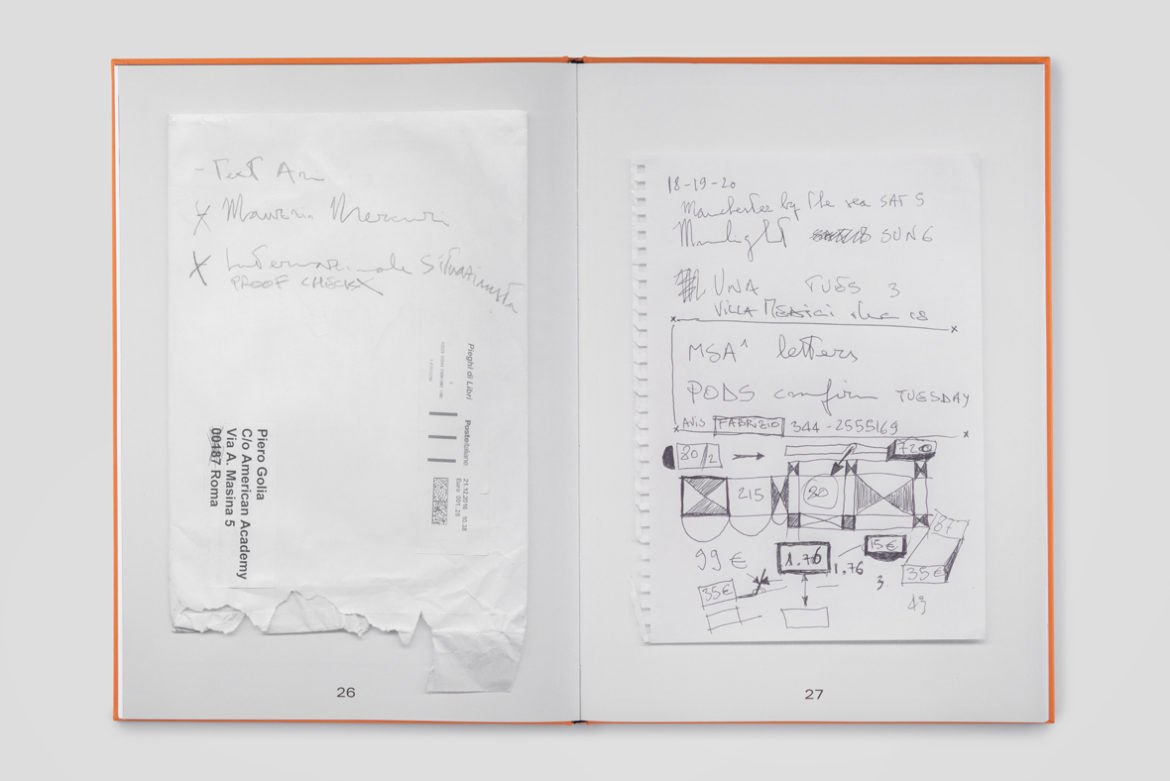 - Text
X Maurizio Mercuri
X Internazionale Situazionista
PROOF CHECK X
Pieghi di Libri
Posteitaliane
21.12.2016 10.28
Euro 001.28
Piero Golia
C/o American Academy
Via A. Masina 5
00187 Roma
26
18-19-20
Manchester by the sea SAT 5
Moonlight SUN 6
UNA TUES 3
VILLA MEDICI
MSA letters
PODS confirm TUESDAY
AVIS FABRIZIO 344-2555169
80/2
720
215
80
87
99 €
1.76
1.76
15 €
3
35€
35€
43
27